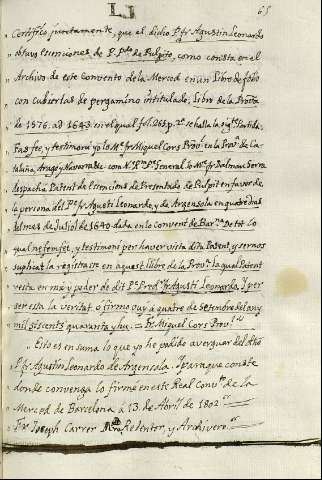 LJ
65
" Certifico juntamente, que el dicho P. fr. Agustin Leonardo
" obtuvo essenciones de P. Pdo. de Pulpito, como consta en el
" Archivo de este convento de la Merced en un libro de folio
" con cubiertas de pergamino intitulado; Libro de la Prova.
" de 1576. ad 1643 en el qual fol. 265 p. 2. se halla la sigte. Partida.
" Fas fee, y testimoni yo lo Mo. fr. Miquel Cors Prol. en la Prova. de Ca-
" taluña, Aragó y Navarra &c com N. Rm. P. General lo Mo. fr. Dalmau Serra
" despachá Patent de essencions de Presentado de Pulpit en favor de
" la persona del P. fr. Agustí Leonardo, y de Argensola en quatre dias
" del mes de Juliol de 1640 dada en lo convent de Barna. de tt. lo
" qual ne fem fee, y testimoni per haver vista dita Patent, y ser nos
" suplicat la registrassem en aquest llibre de la Prova. la qual Patent
" resta en má y poder de dit P. Pred. fr. Agustí Leonardo, y per
" ser esta la veritat o firmo vuy á quatre de Setembre del any
" mil sis cents quaranta y hu. = Fr. Miquel Cors Prol.
" Esto es en suma lo que yo he podido averiguar del dho
" P. fr. Agustin Leonardo de Argensola. Y para que conste
" donde convenga lo firmé en este Real Convto. de la
" Merced de Barcelona á 13 de Abril de 1802
" Fr. Joseph Carrer Mtro. Redentor, y Archivero.